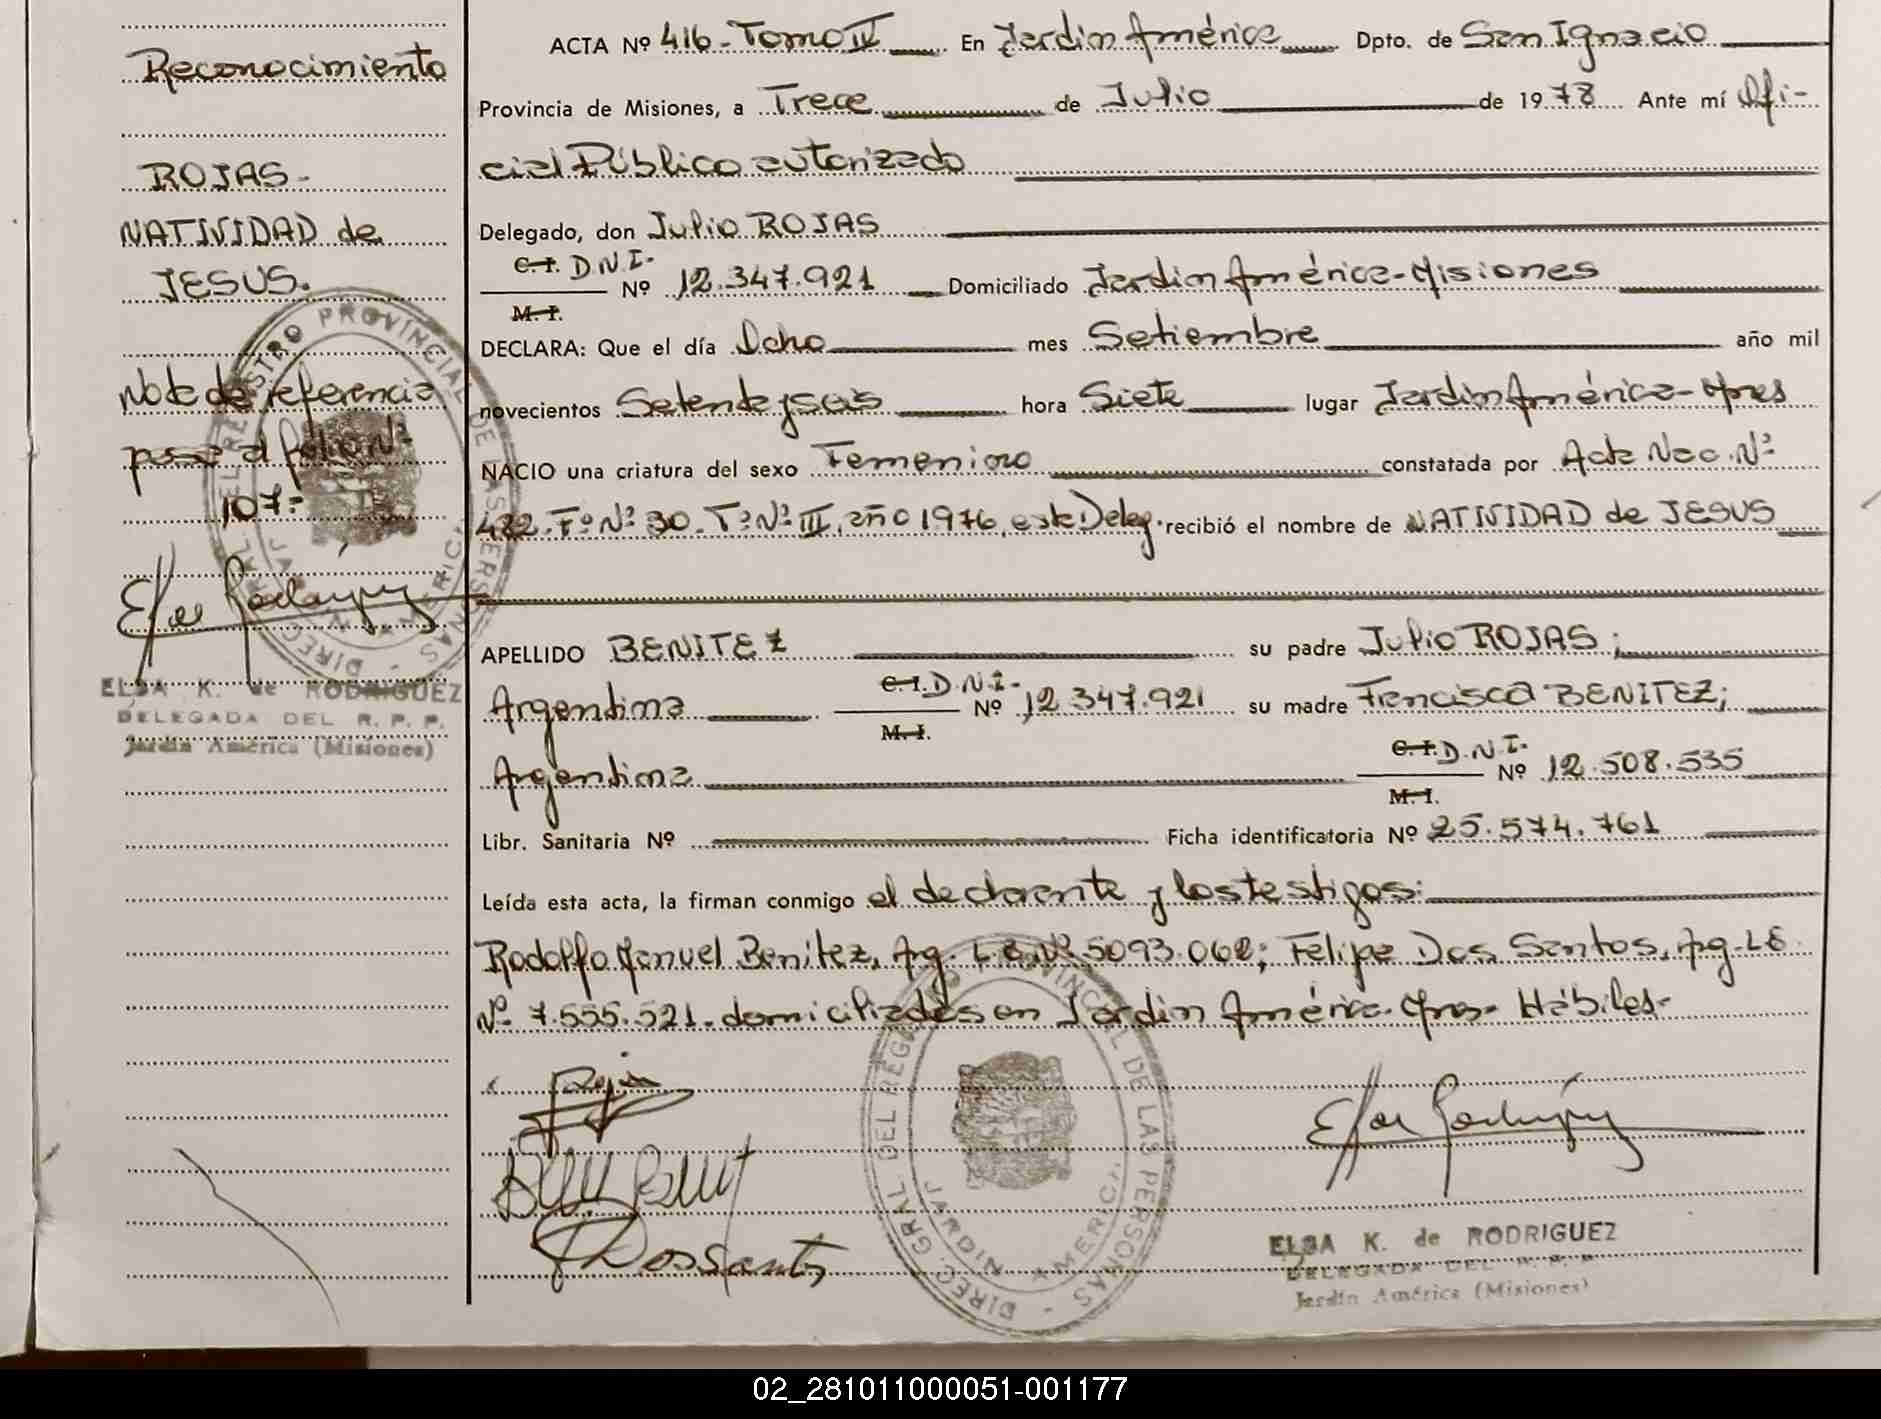 Reconocimiento
ROJAS-
NATIVIDAD de
JESUS.
Nota de referencia
pasa al folio Nº
107-
ELSA K. de RODRIGUEZ
DELEGADA DEL R. P. P.
Jardín América (Misiones)
ACTA Nº 416-Tomo IV En Jardín América Dpto. de San Ignacio
Provincia de Misiones, a Trece de Julio de 1978 Ante mí Ofi-
cial Público autorizado
Delegado, don Julio ROJAS
C.I. D.N.I.
Nº 12.347.921 Domiciliado Jardín América-Misiones
M.I.
DECLARA: Que el día Ocho mes Setiembre año mil
novecientos Setenta y seis hora Siete lugar Jardín América-Mnes
NACIO una criatura del sexo Femenino constatada por Acta Nac. Nº
422. Fº Nº 30. Tº Nº III, año 1976, este Deleg. recibió el nombre de NATIVIDAD de JESUS
APELLIDO BENITEZ su padre Julio ROJAS;
Argentina C.I. D.N.I. Nº 12.347.921 su madre Francisca BENITEZ;
M.I.
Argentina C.I. D.N.I. Nº 12.508.535
M.I.
Libr. Sanitaria Nº Ficha identificatoria Nº 25.574.761
Leída esta acta, la firman conmigo el declarante y los testigos:
Rodolfo Manuel Benitez, Arg. L E. Nº 5093.062; Felipe Dos Santos, Arg. L E.
Nº 7.555.521. domiciliados en Jardín América. Mnes- Hábiles-
DIREC. GRAL DEL REGISTRO PROVINCIAL DE LAS PERSONAS
JARDIN AMERICA
DosSantos
ELSA K. de RODRIGUEZ
DELEGADA DEL R. P. P.
Jardín América (Misiones)
02_281011000051-001177